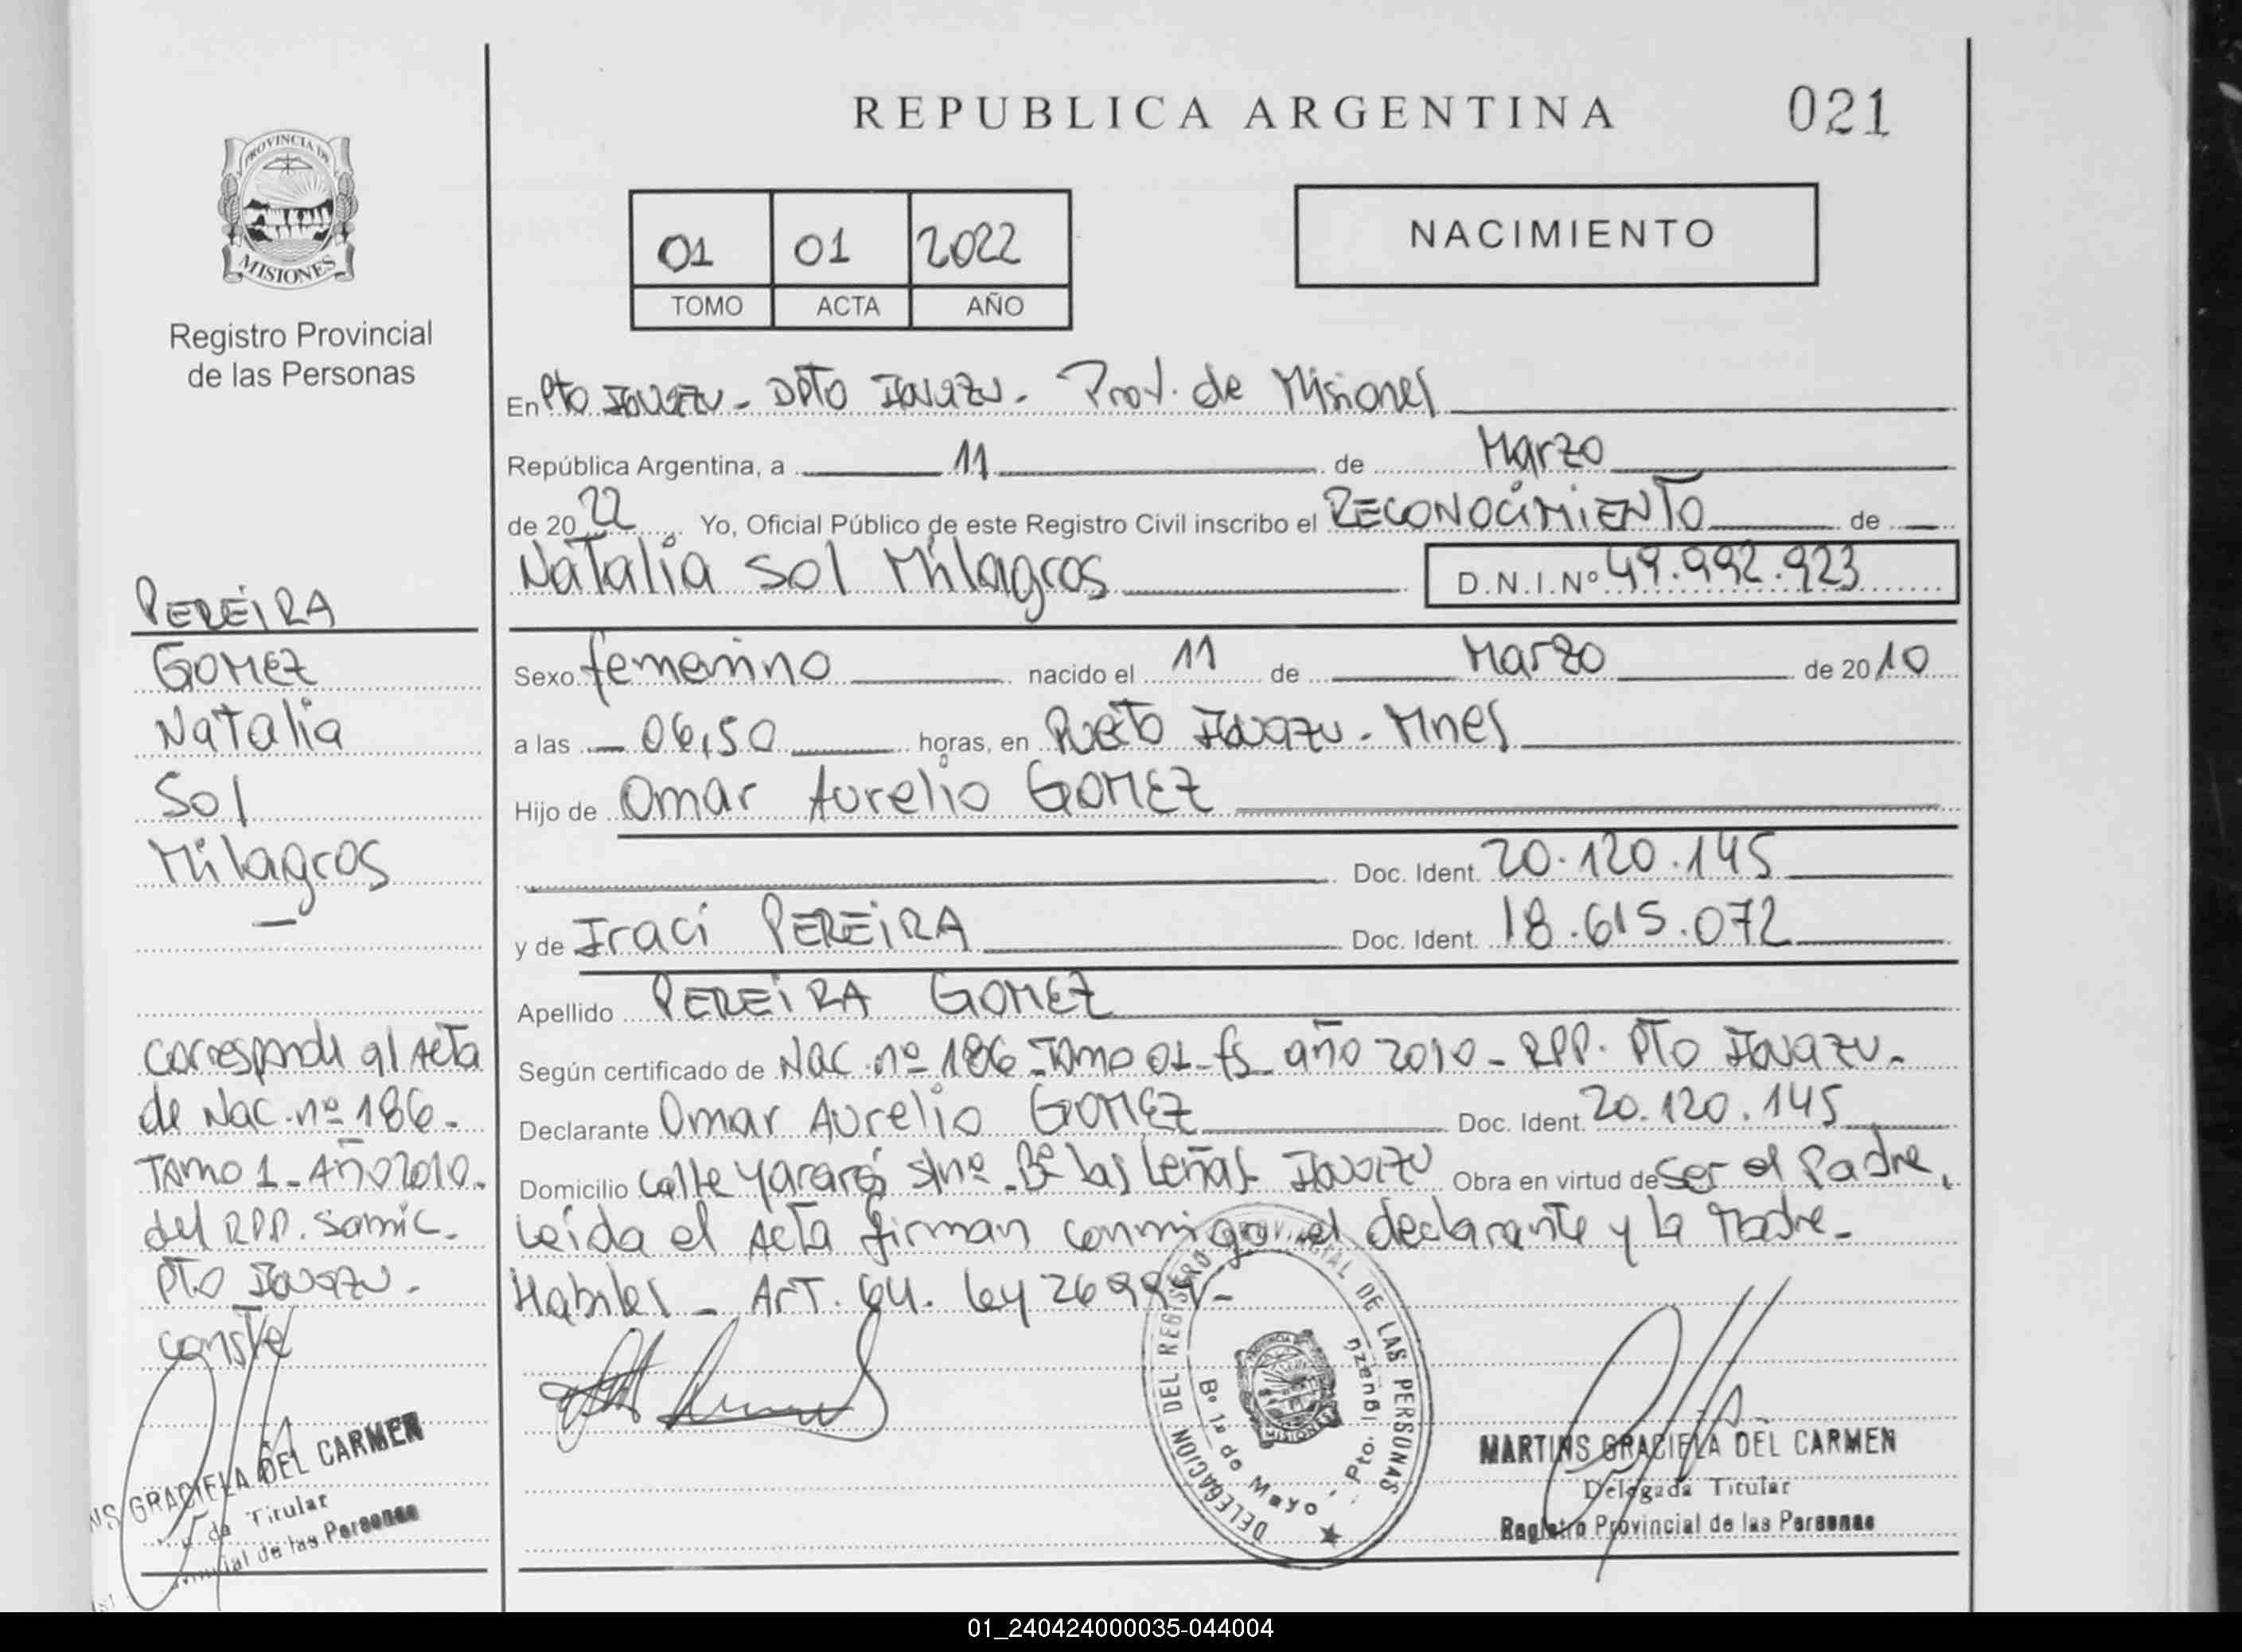 REPUBLICA ARGENTINA
021
PROVINCIA DE
MISIONES
Registro Provincial
de las Personas
01 01 2022
TOMO ACTA AÑO
NACIMIENTO
En Pto Iguazu - Dpto Iguazu - Prov. de Misiones
República Argentina, a 11 de Marzo
de 20 22 Yo, Oficial Público de este Registro Civil inscribo el RECONOCIMIENTO de
Natalia Sol Milagros D.N.I.Nº 49.992.923
Sexo femenino nacido el 11 de Marzo de 2010
a las 06,50 horas, en Puerto Iguazu - Mnes
Hijo de Omar Aurelio GOMEZ
Doc. Ident. 20.120.145
y de Iraci PEREIRA Doc. Ident. 18.615.072
Apellido PEREIRA GOMEZ
Según certificado de Nac. nº 186 - Tomo 01 - fs - año 2010 - RPP. Pto Iguazu -
Declarante Omar Aurelio GOMEZ Doc. Ident. 20.120.145
Domicilio Calle Yarará s/nº - Bº las Leñas - Iguazu Obra en virtud de ser el Padre,
Leída el Acta firman conmigo el declarante y la Madre -
Habiles - Art. 64. Ley 26994 -
PEREIRA
GOMEZ
Natalia
Sol
Milagros
Corresponde al Acta
de Nac. nº 186 -
Tomo 1 - Año 2010 -
del RPP. Samic -
Pto Iguazu -
conste
GRACIELA DEL CARMEN
Titular
de las Personas
DELEGACION DEL REGISTRO PROVINCIAL DE LAS PERSONAS
Bº 1º de Mayo - Pto. Iguazú
MISIONES
MARTINS GRACIELA DEL CARMEN
Delegada Titular
Registro Provincial de las Personas
01_240424000035-044004